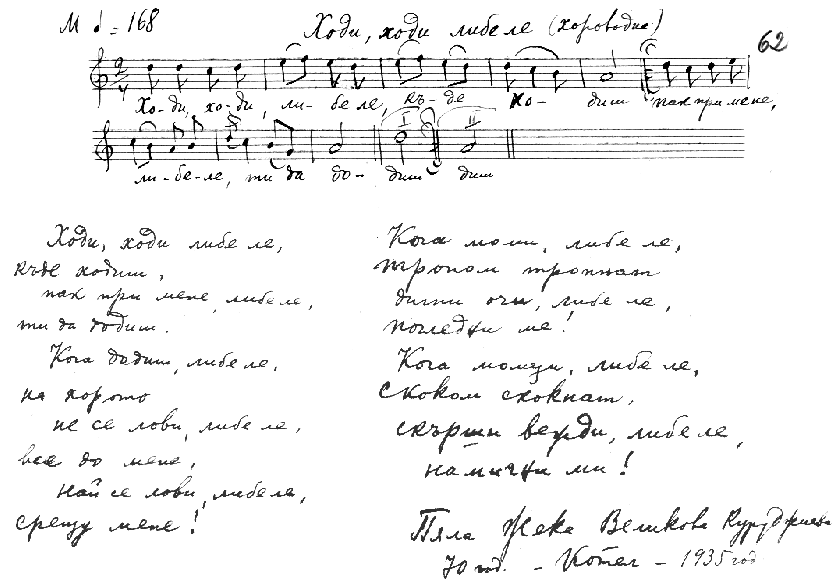 М ♩ = 168
Ходи, ходи либе ле (хороводна)
62
2/4
Хо-ди, хо-ди, ли-бе ле, къ-де хо-диш пак при мене,
I II
ли-бе-ле, ти да до-диш диш
Ходи, ходи либе ле,
къде ходиш,
пак при мене, либе ле,
ти да додиш.
Кога додиш, либе ле,
на хорото
не се лови, либе ле,
все до мене,
най се лови, либе ле,
срещу мене!
Кога моми, либе ле,
тропом тропнат
дигни очи, либе ле,
погледни ме!
Кога момци, либе ле,
скоком скокнат,
скърши вежди, либе ле,
намигни ми!
Пяла Жека Великова Куруджиева
70 год. - Котел - 1935 год